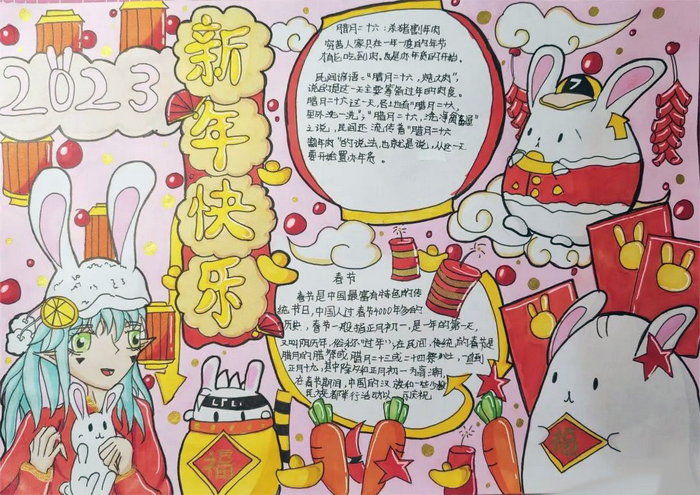 2023
新年快乐
腊月二十六:杀猪割年肉
穷苦人家只在一年一度的年节
才能吃到肉,也是办年货的开始。
民间谚语:“腊月二十六,炖大肉”,
说的是这一天主要筹备过年的肉食。
腊月二十六这一天,
之说,民间还流传着“腊月二十六
割年肉”的说法,也就是说,从这一天
要开始置办年货。
7
春节
春节是中国最富有特色的传
统节日,中国人过春节4000年多的
历史,春节一般指正月初一,是一年的第一天,
又叫阴历年,俗称“过年”,在民间,传统的春节是
腊月的腊祭或腊月二十三或二十四祭灶,一直到
正月十九,其中除夕和正月初一为高潮,
在春节期间,中国的汉族和一些少数
民族都举行活动以示庆祝。
福
福